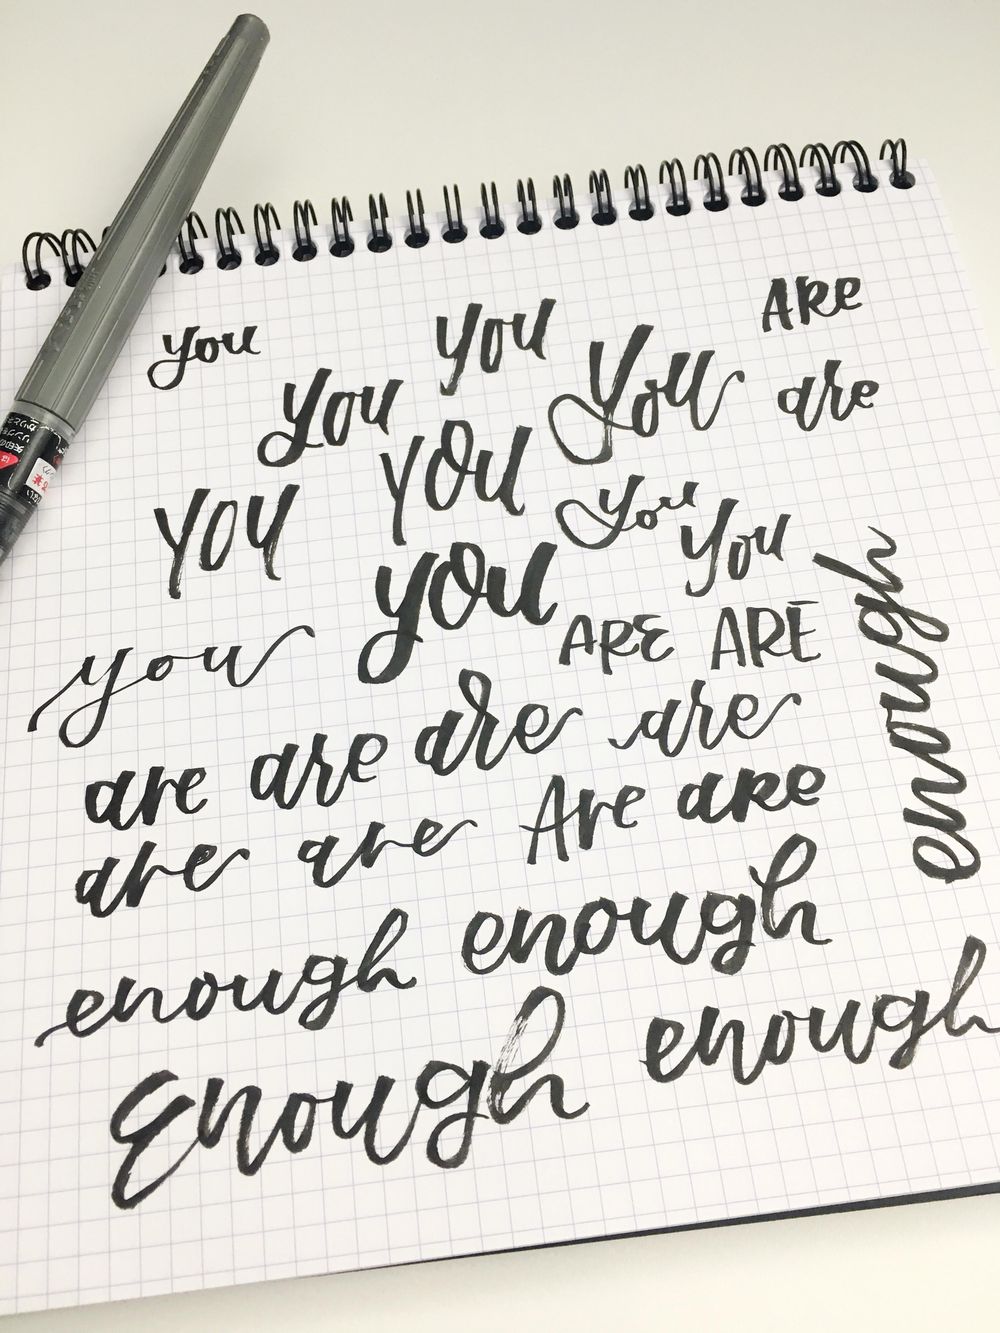 you you Are
you you are
you you you you
you you ARE ARE
are are are are
are are Are are
enough enough
Enough enough
enough